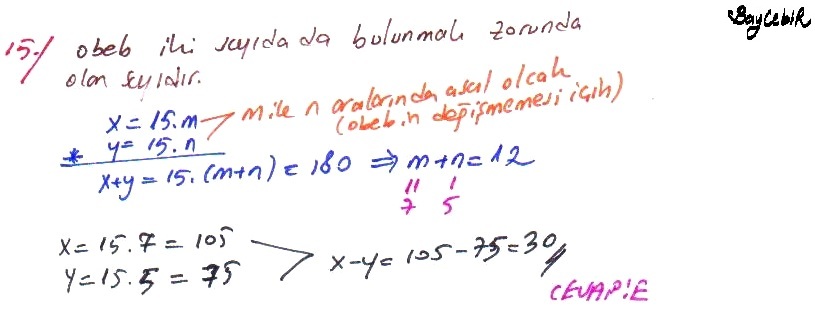 BayCebir
15-/ obeb iki sayıda da bulunmak zorunda
olan sayıdır.
x = 15.m
m ile n aralarında asal olcak
(obeb.in değişmemesi için)
* y = 15.n
x+y = 15.(m+n) = 180 ⇒ m+n = 12
11 1
7 5
x = 15.7 = 105
y = 15.5 = 75
x-y = 105-75 = 30//
CEVAP:E